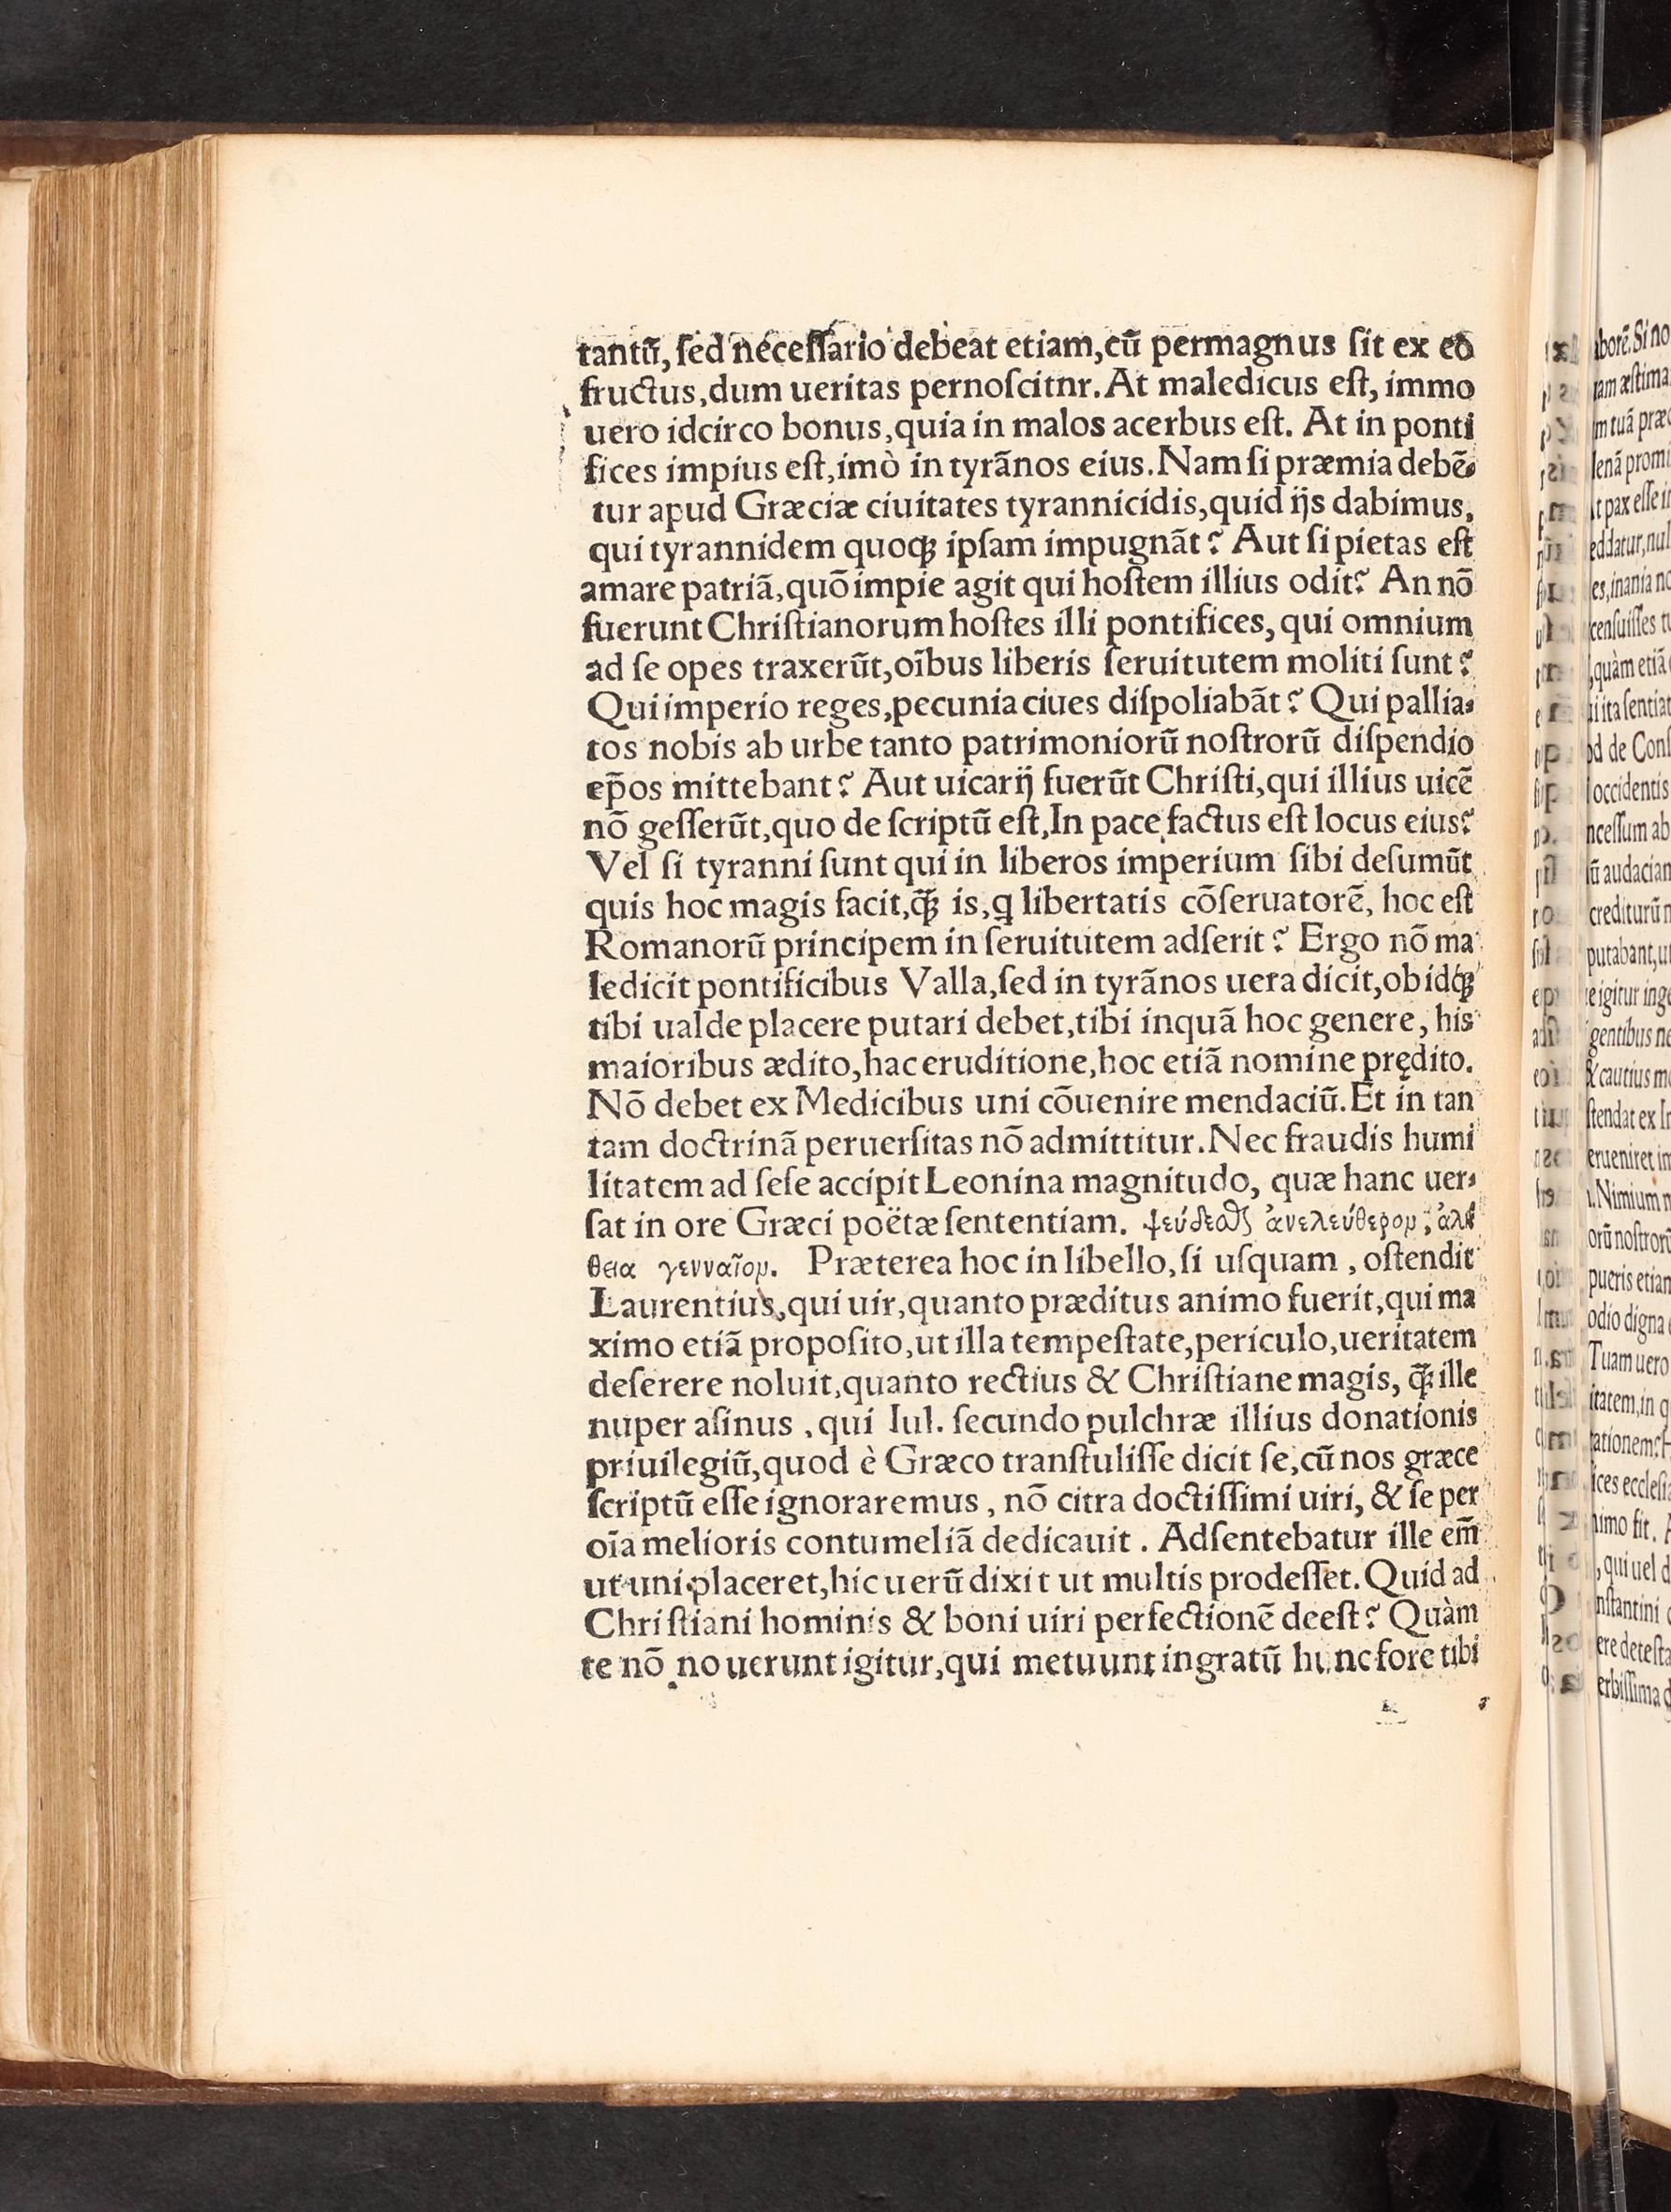 tantū, ſed neceſſario debeat etiam,cū permagnus ſit ex eo
fructus,dum ueritas pernoſcitnr.At maledicus eſt, immo
uero idcirco bonus,quia in malos acerbus eſt. At in ponti
fices impius eſt,imò in tyrānos eius.Nam ſi præmia debē⸗
tur apud Græciæ ciuitates tyrannicidis,quid ijs dabimus,
qui tyrannidem quoqꝫ ipſam impugnāt? Aut ſi pietas eſt
amare patriā,quō impie agit qui hoſtem illius odit? An nō
fuerunt Chriſtianorum hoſtes illi pontifices, qui omnium
ad ſe opes traxerūt,oību​s liberis ſeruitutem moliti ſunt?
Qui imperio reges,pecunia ciues diſpoliabāt? Qui pallia⸗
tos nobis ab urbe tanto patrimoniorū noſtrorū diſpendio
ep̄os mittebant? Aut uicarij fuerūt Chriſti,qui illius uicē
nō geſſerūt,quo de ſcriptū eſt,In pace factus eſt locus eius?
Vel ſi tyranni ſunt qui in liberos imperium ſibi deſumūt
quis hoc magis facit,q̄ꝫ is,q libertatis cōſeruatorē, hoc eſt
Romanorū principem in ſeruitutem adſerit? Ergo nō ma
ledicit pontificibus Valla,ſed in tyrānos uera dicit,ob idqꝫ
tibi ualde placere putari debet,tibi inquā hoc genere, his
maioribus ædito,hac eruditione,hoc etiā nomine prędito.
Nō debet ex Medicibus uni cōuenire mendaciū.Et in tan
tam doctrinā peruerſitas nō admittitur.Nec fraudis humi
litatem ad ſeſe accipit Leonina magnitudo, quæ hanc uer⸗
ſat in ore Græci poëtæ ſententiam. ἀνελεύθερομ, ἀλή
θεια γενναῖομ. Præterea hoc in libello,ſi uſquam , oſtendit
Laurentius,qui uir,quanto præditus animo fuerit,qui ma
ximo etiā propoſito,ut illa tempeſtate,periculo,ueritatem
deſerere noluit,quanto rectius & Chriſtiane magis, q̄ꝫ ille
nuper aſinus , qui Iul. ſecundo pulchræ illius donationis
priuilegiū,quod è Græco tranſtuliſſe dicit ſe,cū nos græce
ſcriptū eſſe ignoraremus , nō citra doctiſſimi uiri, & ſe per
oīa melioris contumeliā dedicauit . Adſentebatur ille em̄
ut uni placeret,hic uerū dixit ut multis prodeſſet.Quid ad
Chriſtiani hominis & boni uiri perfectionē deeſt? Quàm
te nō nouerunt igitur,qui metuunt ingratū hunc fore tibi